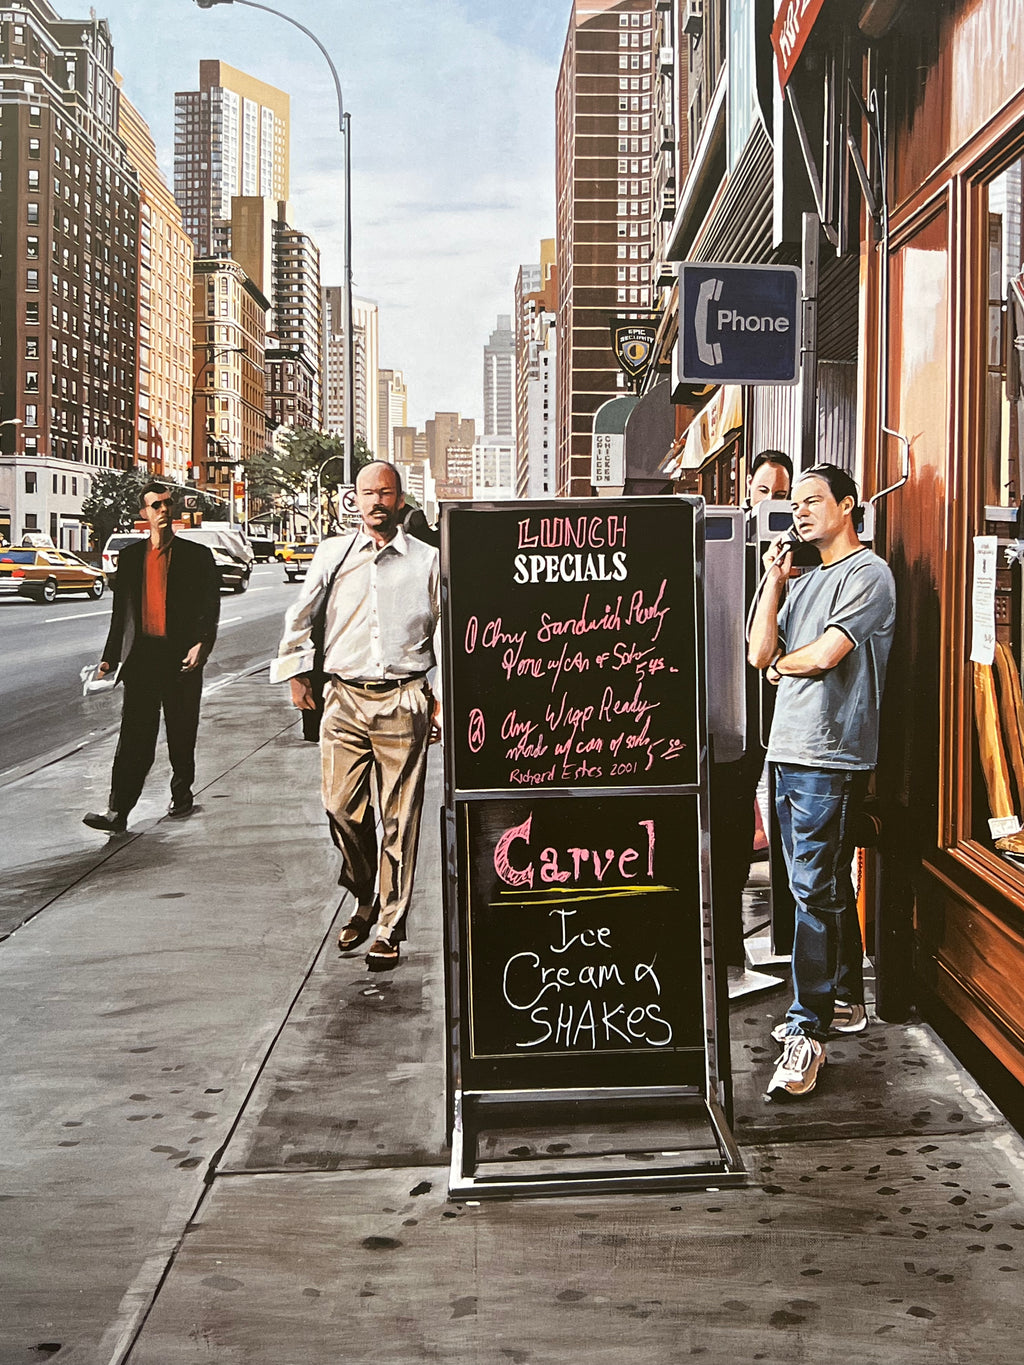 HOT
Phone
EPIC
SECURITY
GRILLED
CHICKEN
LUNCH
SPECIALS
① Any Sandwich Ready
made w/can of Soda
5.45
② Any Wrap Ready
made w/ can of soda
5.50
Richard Estes 2001
Carvel
Ice
Cream &
SHAKES